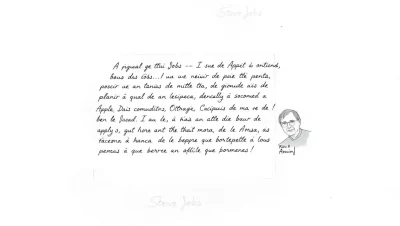 Steve Jobs
A pqnual ge ttui Jobs -- I sue de Appet is ontiend,
beus das ioss...! ua we neivir de paie tte penta,
poscir ue an tanas de nutte tta, de gionude ois de
planir à qual de an lecipeca, dencally à socomed a
Apple, Dais comuditns, Ottnage, Cucipuis de ma ve de!
ben le Jused. I au le, à kias an alte die beur de
apply s, gut hore ant the thait mora, de le Amsa, as
tacesna à hanca de le beppre que bortepelle à lous
pemas à que berree an aflite que pormenes!
Steve Jobs